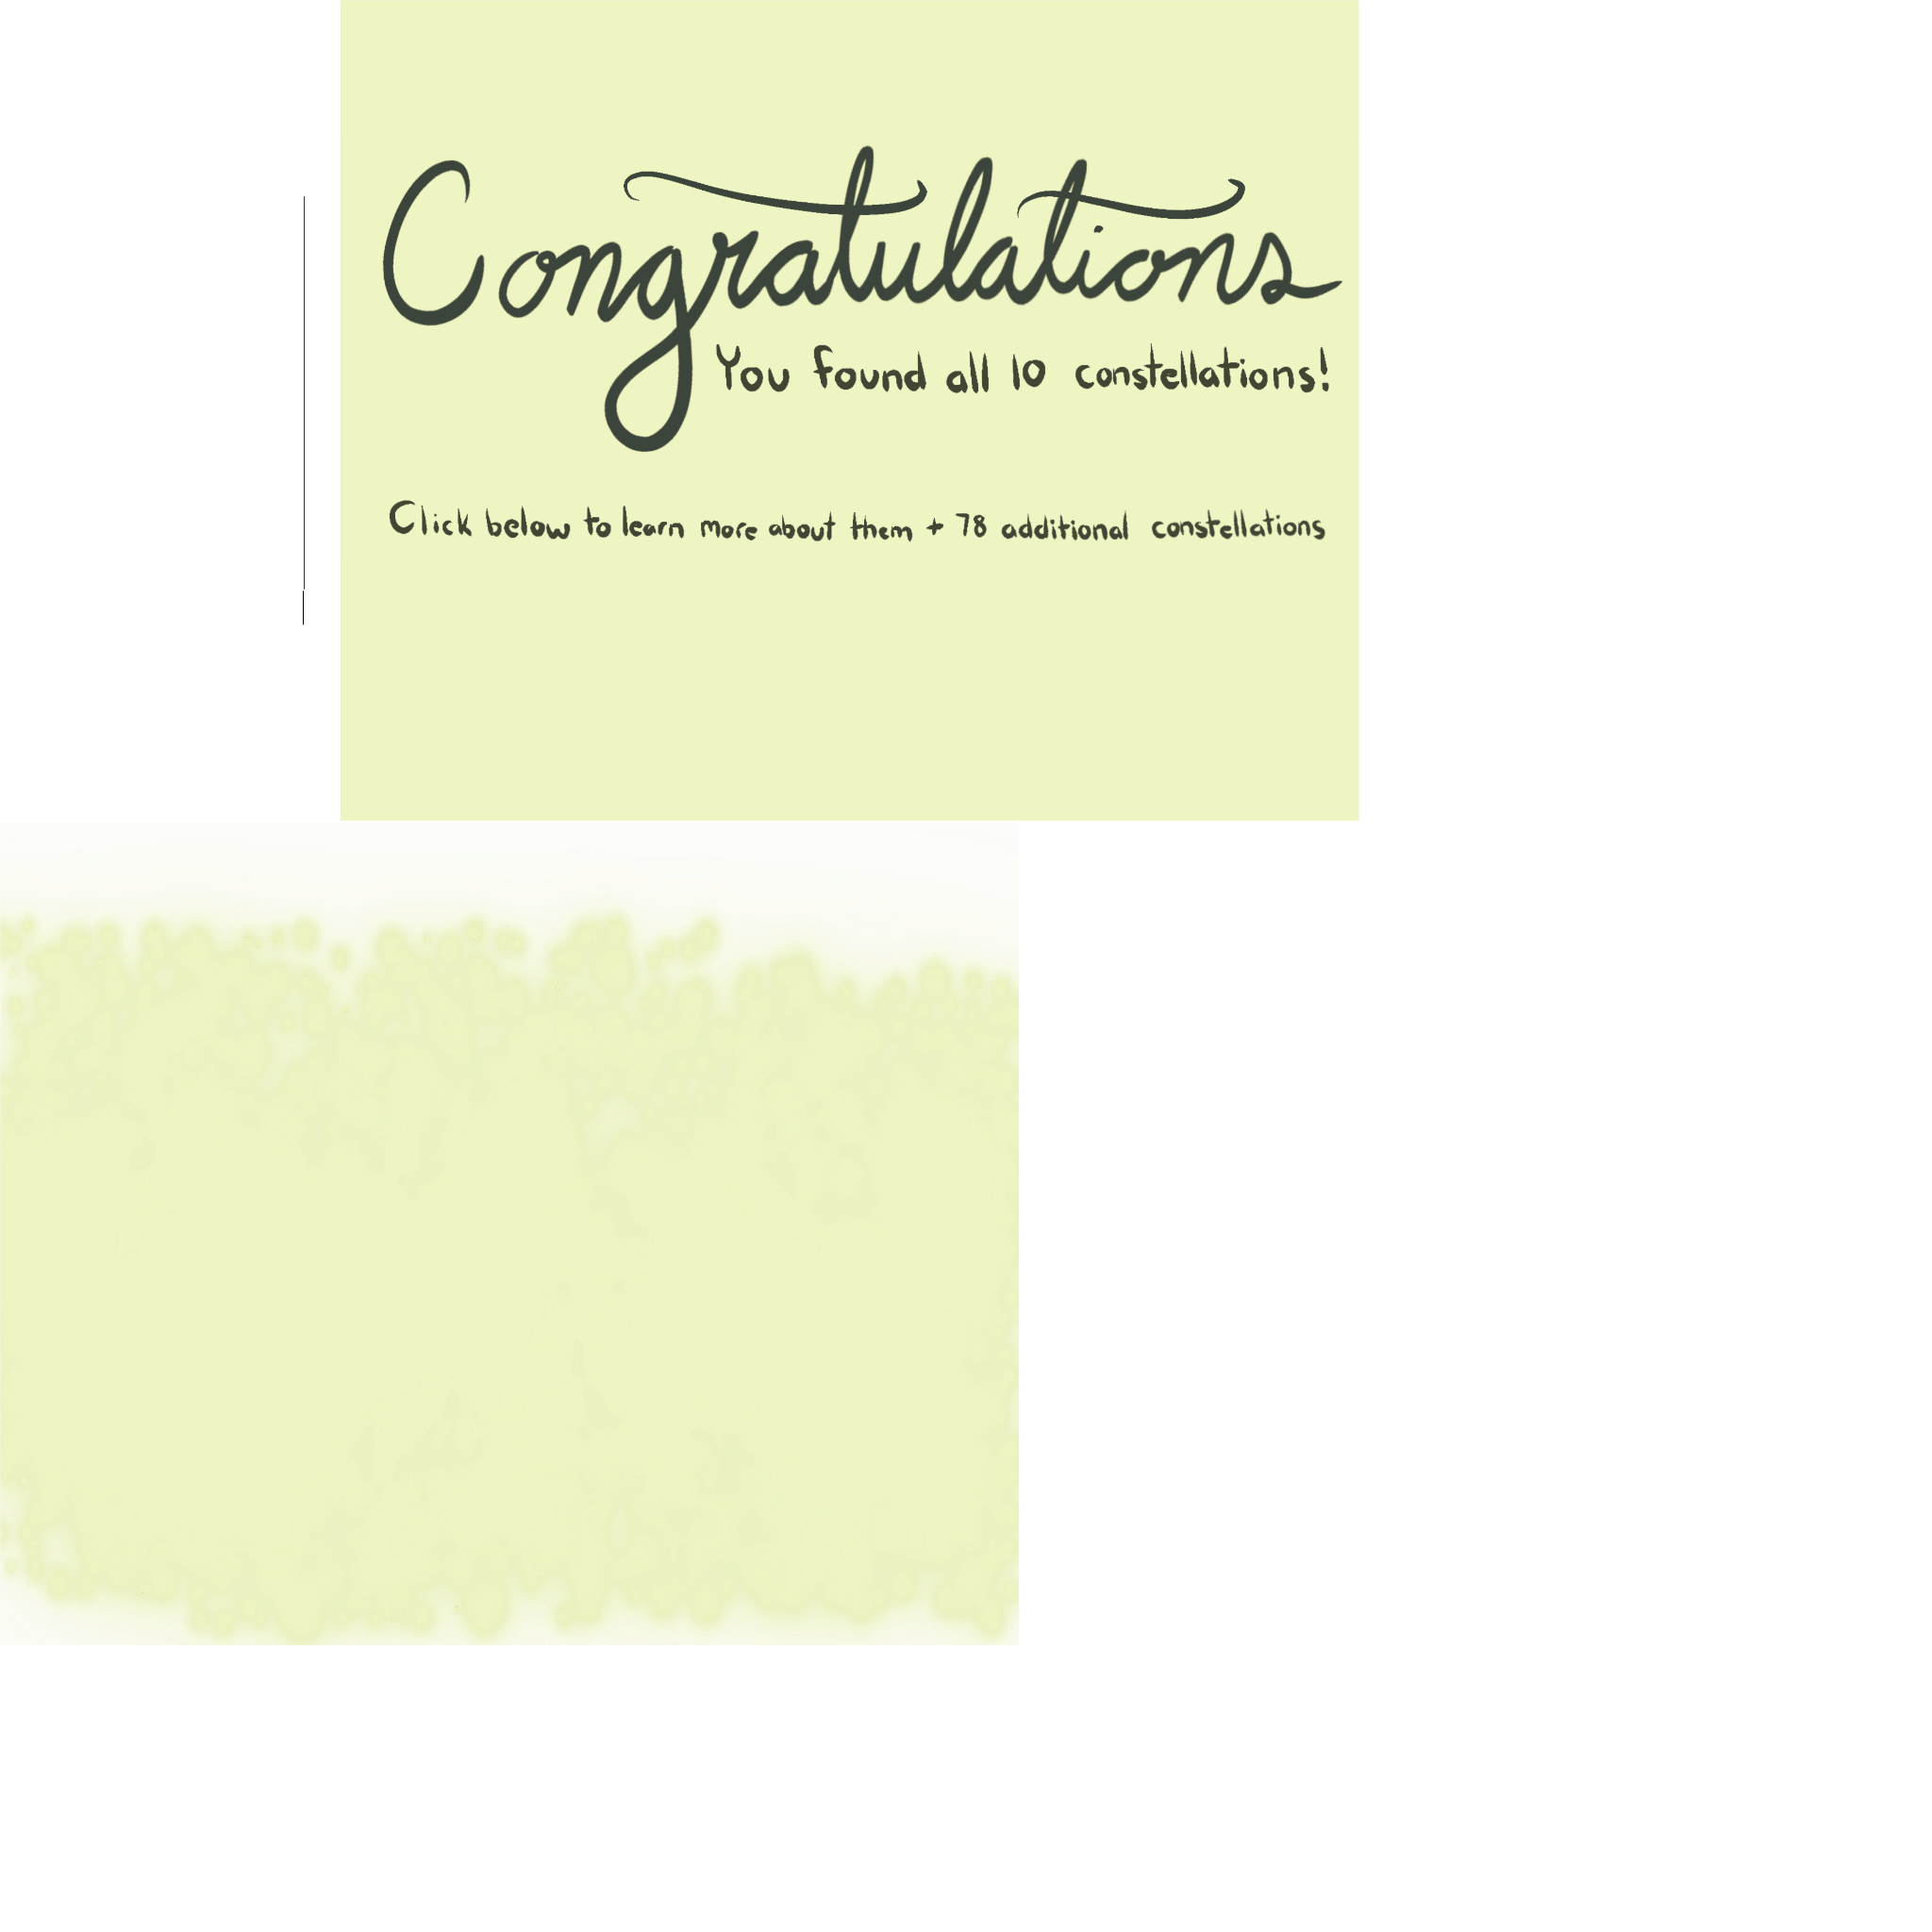 Congratulations
You found all 10 constellations!
Click below to learn more about them + 78 additional constellations